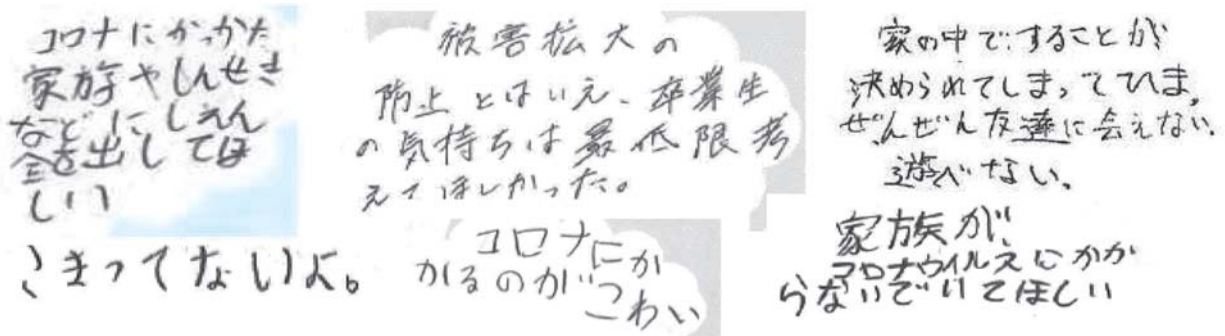 コロナにかっかた
家族やしんせき
などにしえん
金を出してほ
しい
こまってないよ。
被害拡大の
防止とはいえ、卒業生
の気持ちは最低限考
えてほしかった。
コロナにか
かるのがこわい
家の中ですることが
決められてしまってひま。
ぜんぜん友達に会えない。
遊べない。
家族が
コロナウイルスにかか
らないでいてほしい